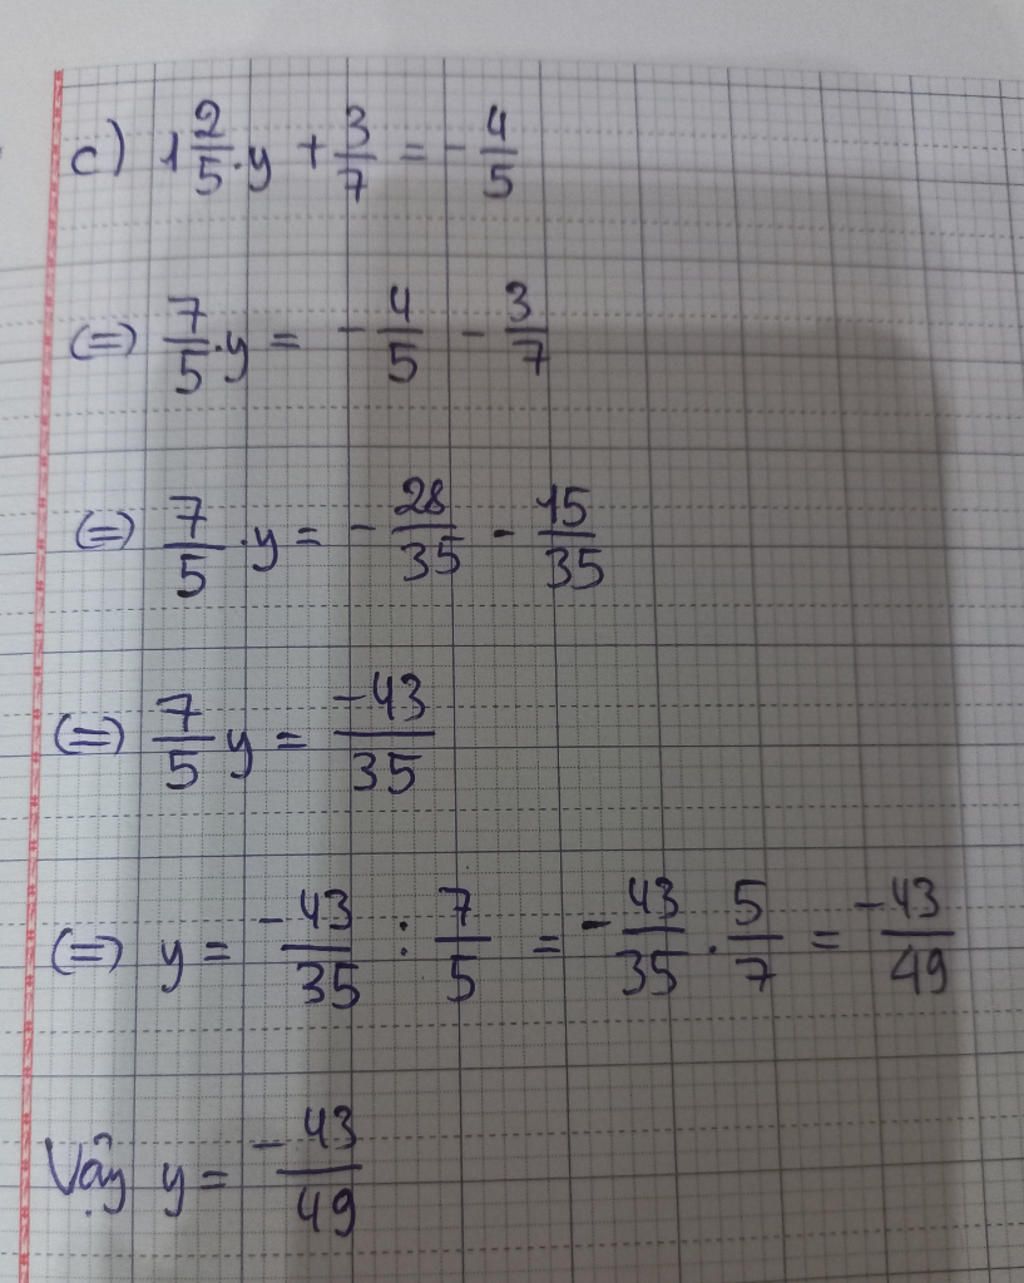 c) 1 2/5 . y + 3/7 = - 4/5
(=) 7/5 . y = - 4/5 - 3/7
(=) 7/5 . y = - 28/35 - 15/35
(=) 7/5 y = -43/35
(=) y = -43/35 : 7/5 = - 43/35 . 5/7 = -43/49
Vậy y = -43/49